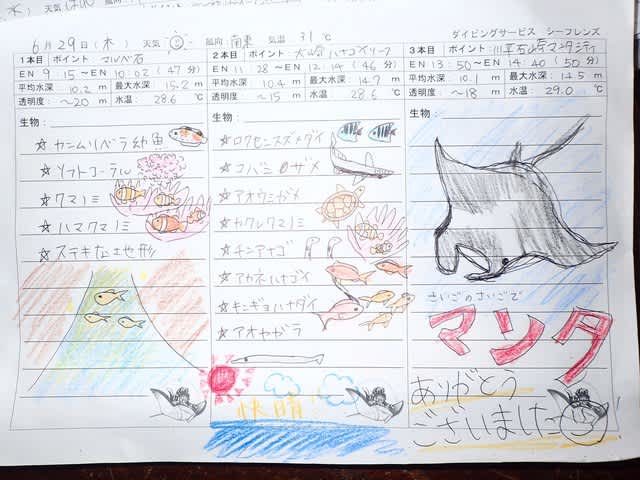 ダイビングサービス シーフレンズ
6月29日(木) 天気 風向 南東 気温 31℃
1本目 ポイント マルベ石
EN 9:15〜EN 10:02 (47分)
平均水深: 10.2 m 最大水深 15.2 m
透明度: 〜20 m 水温: 28.6 ℃
生物:
☆カンムリベラ幼魚
☆ソフトコーラル
☆クマノミ
☆ハマクマノミ
☆ステキな地形
2本目 ポイント: 大崎ハナゴイリーフ
EN 11:28〜EN 12:14 (46分)
平均水深: 10.4 m 最大水深 14.7 m
透明度: 〜15 m 水温: 28.6 ℃
生物:
☆ロクセンスズメダイ
☆コバンザメ
☆アオウミガメ
☆カクレクマノミ
☆チンアナゴ
☆アカネハナゴイ
☆キンギョハナダイ
☆アオヤガラ
快晴
3本目 ポイント: 川平石崎マンタシティ
EN 13:50〜EN 14:40 (50分)
平均水深: 10.1 m 最大水深 14.5 m
透明度: 〜18 m 水温: 29.0 ℃
生物:
さいごのさいごで
マンタ
ありがとう
ございました